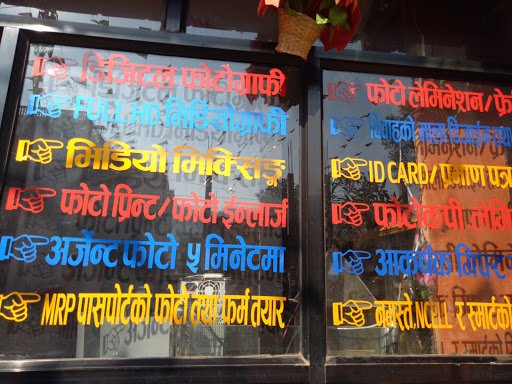 डिजिटल फोटोग्राफी
FULL HD भिडियोग्राफी
भिडियो मिक्सिङ्ग
फोटो प्रिन्ट/फोटो ईन्लार्ज
अर्जेन्ट फोटो ५ मिनेटमा
MRP पासपोर्टको फोटो तथा फर्म तयार
फोटो लेमिनेशन/फ्रे
विवाहको
ID CARD/प्रमाण पत्र
फोटोकपी लेमि
आकर्षक गिफ्ट
नमस्ते, NCELL र स्मार्टको